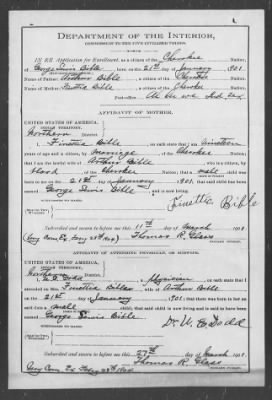 DEPARTMENT OF THE INTERIOR,
COMMISSION TO THE FIVE CIVILIZED TRIBES.
IN RE Application for Enrollment, as a citizen of the Cherokee Nation,
of George Lewis Bible, born on the 21st day of January, 1901.
Name of Father: Arthur Bible, a citizen of the Cherokee Nation.
Name of Mother: Finettie Bible, a citizen of the Cherokee Nation.
Ind Ter
AFFIDAVIT OF MOTHER.
UNITED STATES OF AMERICA,
INDIAN TERRITORY,
Northern District.
I, Finettie Bible, on oath state that I am nineteen
years of age and a citizen, by marriage, of the Cherokee Nation;
that I am the lawful wife of Arthur Bible, who is a citizen, by
blood, of the Cherokee Nation; that a male child was
born to me on 21st day of January, 1901; that said child has been
named George Lewis Bible, and is now living.
Finettie Bible
Subscribed and sworn to before me this 11th day of March, 190
Thomas R. Glass
NOTARY PUBLIC.
AFFIDAVIT OF ATTENDING PHYSICIAN, OR MIDWIFE.
UNITED STATES OF AMERICA,
INDIAN TERRITORY,
Northern District.
I, W. E. Dodd, a physician, on oath state that I
attended on Mrs. Finettie Bible, wife of Arthur Bible
on the 21st day of January, 1901; that there was born to her on said date a
male child; that said child is now living and is said to have been
named George Lewis Bible
Dr W. E. Dodd
Subscribed and sworn to before me this 27th day of March, 190
Thomas R. Glass
NOTARY PUBLIC.